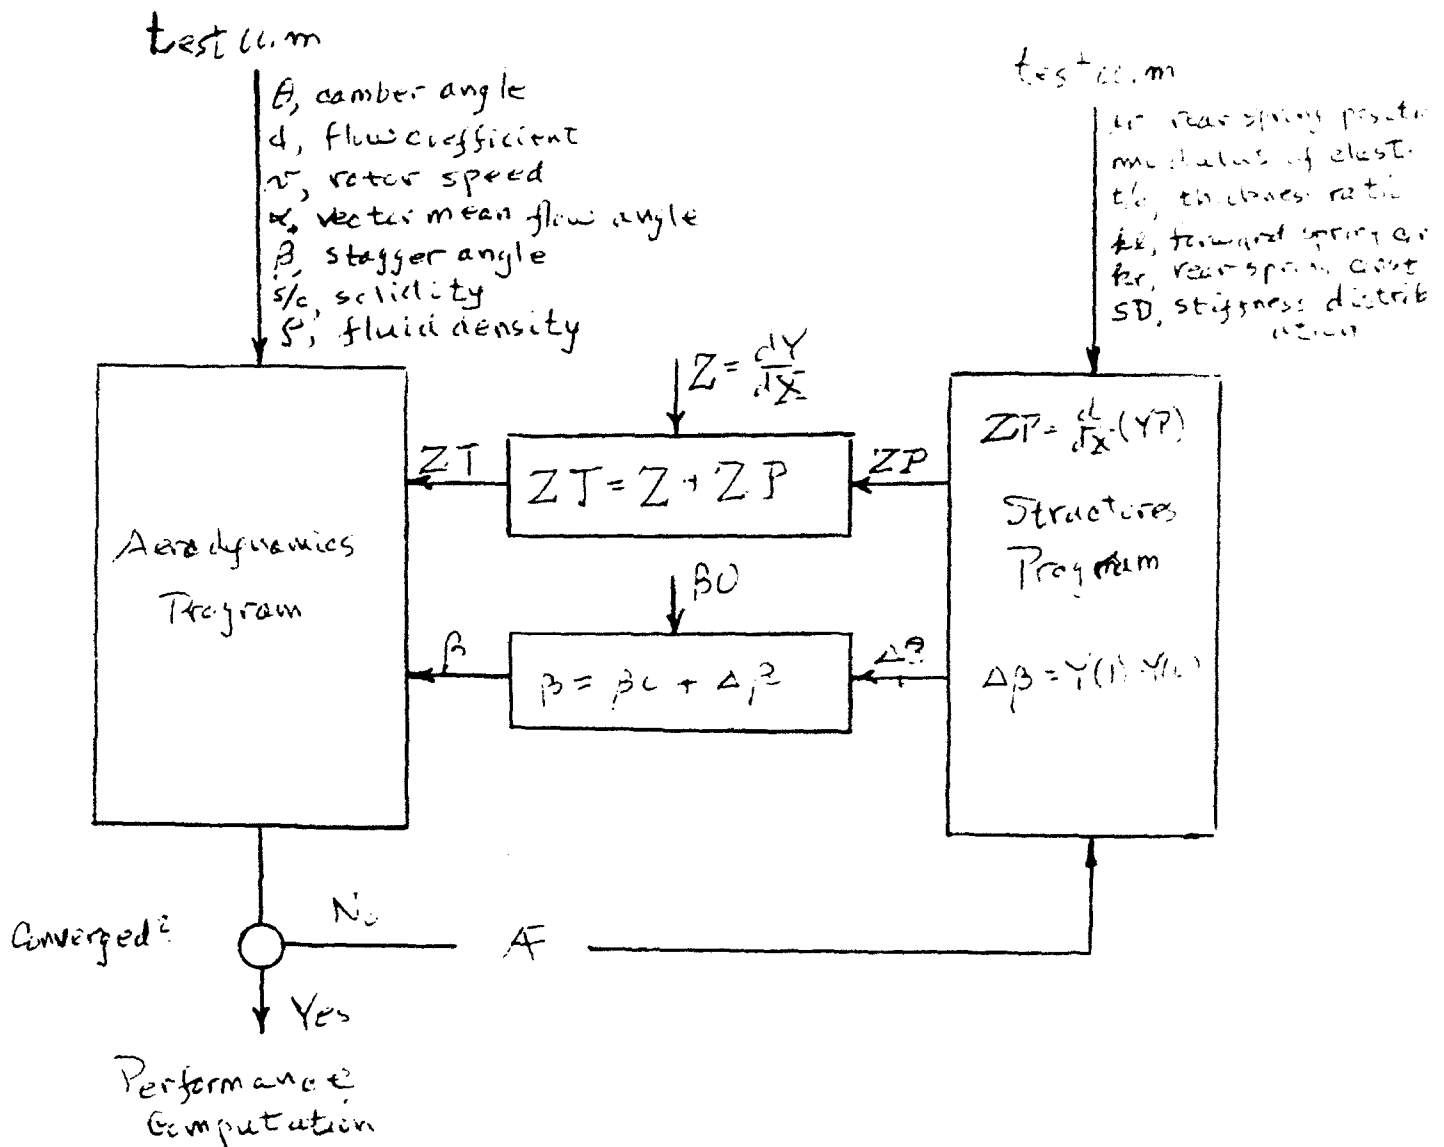 θ, camber angle
flow coefficient
rotor speed
α, vector mean flow angle
β, stagger angle
s/c, solidity
ρ, fluid density
rear spring
modulus of elast.
t/c, thickness ratio
forward spring
kr, rear spring const
SD, stiffness distrib
ution
Z = dY/dX
ZP = d/dX (YP)
ZT
ZT = Z + ZP
ZP
Structures
Program
Aerodynamics
Program
β0
β
β = β0 + Δβ
Δβ = Y(1)
No
Converged?
AF
Yes
Performance
Computation